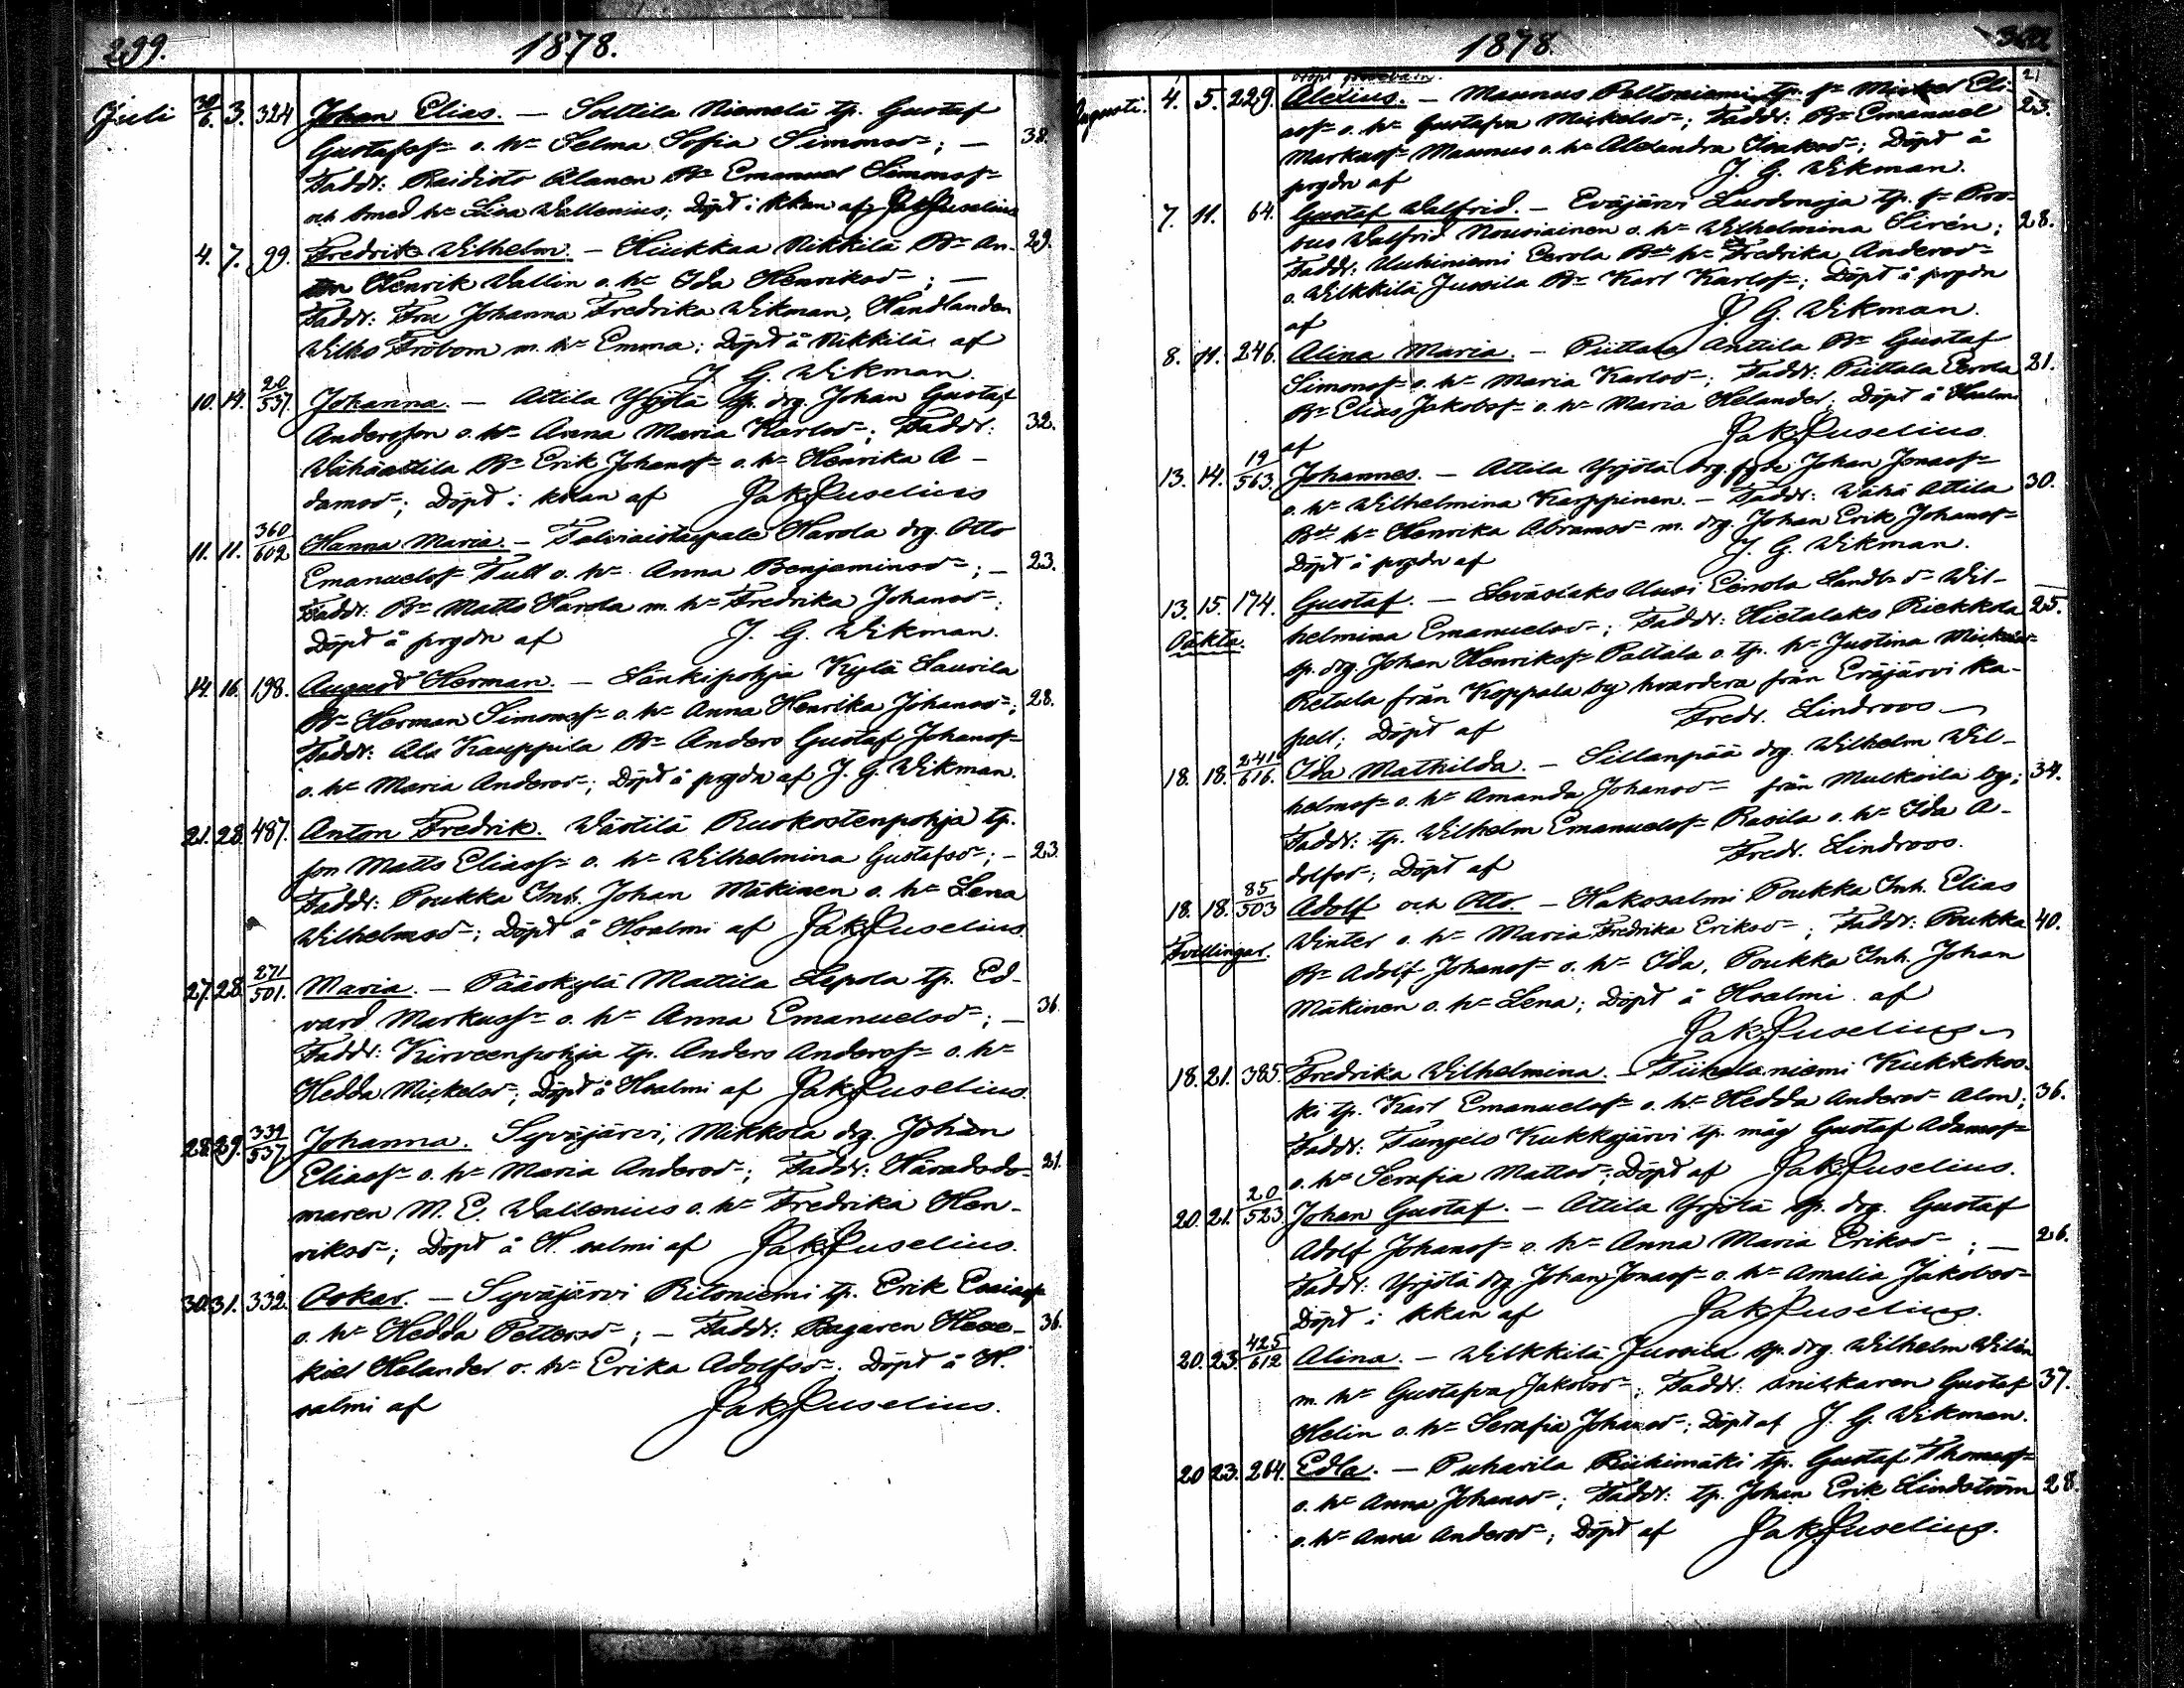 299. 1878.
Juli 30/6. 3. 324 Johan Elias. — Sottila Niemelä tp. Gustaf
Gustafss. o. h. Selma Sofia Simonsd.; — 38.
Faddr: Raidisto Alanen B. Emanuel Simonss.
och h. Lisa Wallenius; Döpt i kkan af Jak. Juselius
4. 7. 99. Fredrik Wilhelm. — Hiukkaa Nikkilä B. An- 29.
Henrik Wallin o. h. Ida Henriksd.; —
Faddr: Fru Johanna Fredrika Wikman, Handlanden
Wilho Fröbom m. h. Emma; Döpt å Nikkilä af
J. G. Wikman.
10. 14. 20/537. Johanna. — Attila Yrjölä sp. drg. Johan Gustaf
Andersson o. h. Anna Maria Karlsd.; Faddr: 32.
Wähäattila B. Erik Johanss. o. h. Henrika A-
damsd.; Döpt i kkan af Jak. Juselius
11. 11. 360/602 Hanna Maria. — Talviaistaipale Harola drg. Otto
Emanuelss. Tull o. h. Anna Benjaminsd.; — 23.
Faddr: B. Matts Harola m. h. Fredrika Johansd.;
Döpt å prgdn af J. G. Wikman.
14. 16. 198. August Herman. — Länkipohja Kylä Laurila
B. Herman Simonss. o. h. Anna Henrika Johansd.; 28.
Faddr: Ala Kauppila B. Anders Gustaf Johanss.
o. h. Maria Andersd.; Döpt å prgdn af J. G. Wikman.
21. 28. 487. Anton Fredrik. Wästilä Ruokostenpohja tp.
son Matts Eliass. o. h. Wilhelmina Gustafsd.; — 23.
Faddr: Poukka Inh. Johan Mäkinen o. h. Lena
Wilhelmsd.; Döpt å Hsalmi af Jak. Juselius.
27. 28. 271/501. Maria. — Pääskylä Mattila Lepola tp. Ed-
vard Markuss. o. h. Anna Emanuelsd.; — 36.
Faddr: Kirveenpohja tp. Anders Anderss. o. h.
Hedda Mickelsd.; Döpt å Hsalmi af Jak. Juselius.
28. 29. 339/537. Johanna. Syväjärvi, Mikkola drg. Johan
Eliass. o. h. Maria Andersd.; Faddr: Häradsdo- 21.
maren M. E. Wallenius o. h. Fredrika Hen-
riksd.; Döpt å H. salmi af Jak. Juselius.
30. 31. 332. Oskar. — Syväjärvi Ritoniemi tp. Erik Esaiass.
o. h. Hedda Pettersd.; — Faddr: Bagaren Hese- 36.
kiel Helander o. h. Erika Adolfsd. Döpt å H.
salmi af Jak. Juselius.
1878.
Augusti. 4. 5. 229. Alexius. — Maunus Peltoniemi tp. s. Mickel Eli- 23.
ass. o. h. Gustafva Mickelsd.; Faddr: B. Emanuel
Markuss. Maunus o. h. Alexandra Isaksd.; Döpt å
prgdn af J. G. Wikman.
7. 11. 64. Gustaf Walfrid. — Eväjärvi Luodonoja tp. s. Pro-
tus Walfrid Nousiainen o. h. Wilhelmina Sirén; 28.
Faddr: Uuhiniemi Eerola B. h. Fredrika Andersd.
o. Wilkkilä Jussila B. Karl Karlss.; Döpt å prgdn
af J. G. Wikman.
8. 11. 246. Alina Maria. — Piittala Anttila B. Gustaf
Simonss. o. h. Maria Karlsd.; Faddr: Piittala Eerola 21.
B. Elias Jakobss. o. h. Maria Helander; Döpt å Hsalmi
af Jak. Juselius.
13. 14. 19/563. Johannes. — Attila Yrjölä drg. Johan Jonass.
o. h. Wilhelmina Karppinen. — Faddr: Wähä Attila 30.
B. h. Henrika Abramsd. m. drg. Johan Erik Johanss.
Döpt å prgdn af J. G. Wikman.
13. 15. 174. Gustaf. — Leväslaks Uusi Eerola Landb. d. Wil-
Oäkta. helmina Emanuelsd.; Faddr: Hietalaks Riekkola 25.
sp. drg. Johan Henrikss. Paltala o. tp. h. Justina
Retula från Koppala by hvardera från Eräjärvi ka-
pell; Döpt af Fredr. Lindroos
18. 18. 241/616. Ida Mathilda. — Sillanpää drg. Wilhelm Wil-
helmss. o. h. Amanda Johansd. från Mulkoila by; 34.
Faddr: tp. Wilhelm Emanuelss. Rasila o. h. Ida A-
dolfsd.; Döpt af Fredr. Lindroos.
18. 18. 85/503 Adolf och Otto. — Hakosalmi Poukka Inh. Elias
Tvillingar. Winter o. h. Maria Fredrika Eriksd.; Faddr: Poukka 40.
B. Adolf Johanss. o. h. Ida, Poukka Inh. Johan
Mäkinen o. h. Lena; Döpt å Hsalmi af
Jak. Juselius
18. 21. 385. Fredrika Wilhelmina. — Tiihalaniemi Kukkokos-
ki tp. Karl Emanuelss. o. h. Hedda Andersd. Alon; 36.
Faddr: Tunzelo Kukkojärvi tp. måg Gustaf Adamss.
o. h. Serafia Mattsd.; Döpt af Jak. Juselius.
20. 21. 20/523. Johan Gustaf. — Attila Yrjölä sp. drg. Gustaf
Adolf Johanss. o. h. Anna Maria Eriksd.; — 26.
Faddr: Yrjölä drg. Johan Jonass. o. h. Amalia Jakobsd.
Döpt i kkan af Jak. Juselius.
20. 23. 425/612 Alina. — Wilkkilä Jussila sp. drg. Wilhelm Wilén
m. h. Gustafva Jakobsd.; Faddr: snickaren Gustaf 37.
Helin o. h. Serafia Johansd.; Döpt af J. G. Wikman.
20 23. 264. Edla. — Puharila Riihimäki tp. Gustaf Thomass.
o. h. Anna Johansd.; Faddr: tp. Johan Erik Lindström 28.
o. h. Anna Andersd.; Döpt af Jak. Juselius.